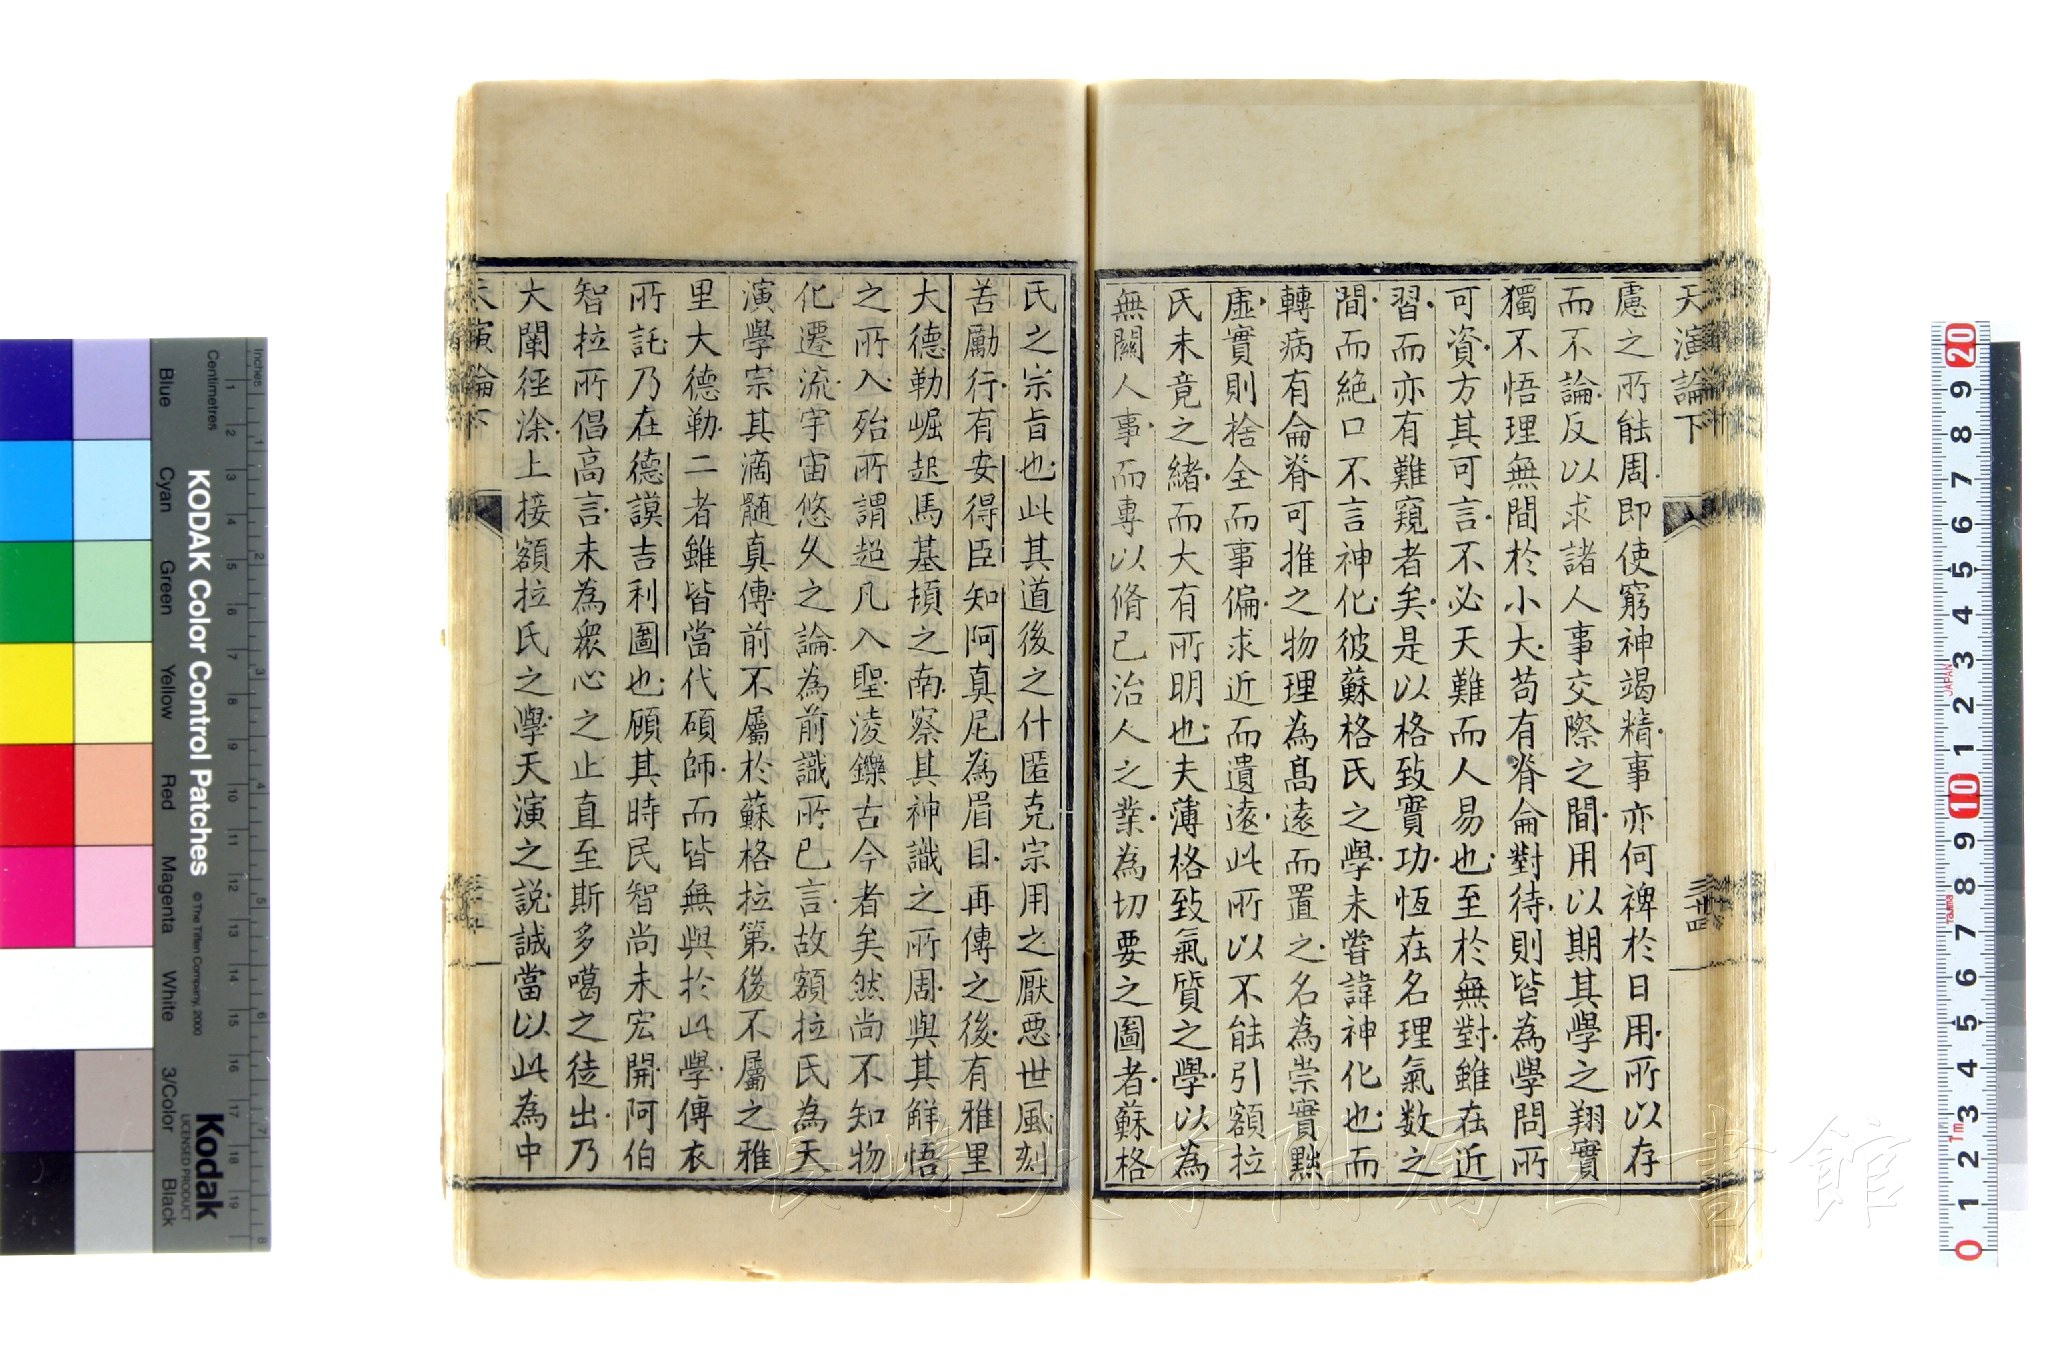 天演論下
慮之所能周即使窮神竭精事亦何裨於日用所以存
而不論反以求諸人事交際之間用以期其學之翔實
獨不悟理無間於小大苟有脊侖對待則皆為學問所
可資方其可言不必天難而人易也至於無對雖在近
習而亦有難窺者矣是以格致實功恆在名理氣数之
間而絶口不言神化彼蘇格氏之學未嘗諱神化也而
轉病有侖脊可推之物理為髙遠而置之名為崇實黜
虛實則捨全而事偏求近而遺遠此所以不能引額拉
氏未竟之緒而大有所明也夫薄格致氣質之學以為
無關人事而專以脩已治人之業為切要之圖者蘇格
氏之宗旨也此其道後之什匿克宗用之厭惡世風刻
苦勵行有安得臣知阿真尼為眉目再傳之後有雅里
大德勒崛起馬基頓之南察其神識之所周與其解悟
之所入殆所謂超凡入聖淩鑠古今者矣然尚不知物
化遷流宇宙悠久之論為前識所已言故額拉氏為天
演學宗其滴髓真傳前不屬於蘇格拉第後不屬之雅
里大德勒二者雖皆當代碩師而皆無與於此學傳衣
所託乃在德謨吉利圖也顧其時民智尚未宏開阿伯
智拉所倡高言未為衆心之止直至斯多噶之徒出乃
大闡徑涂上接額拉氏之學天演之説誠當以此為中
天演論下
三十四
長崎大学附属図書館
KODAK Color Control Patches
© The Tiffen Company, 2000
Kodak
LICENSED PRODUCT
Inches
Centimetres
Blue
Cyan
Green
Yellow
Red
Magenta
White
3/Color
Black
JAPAN
Tajima